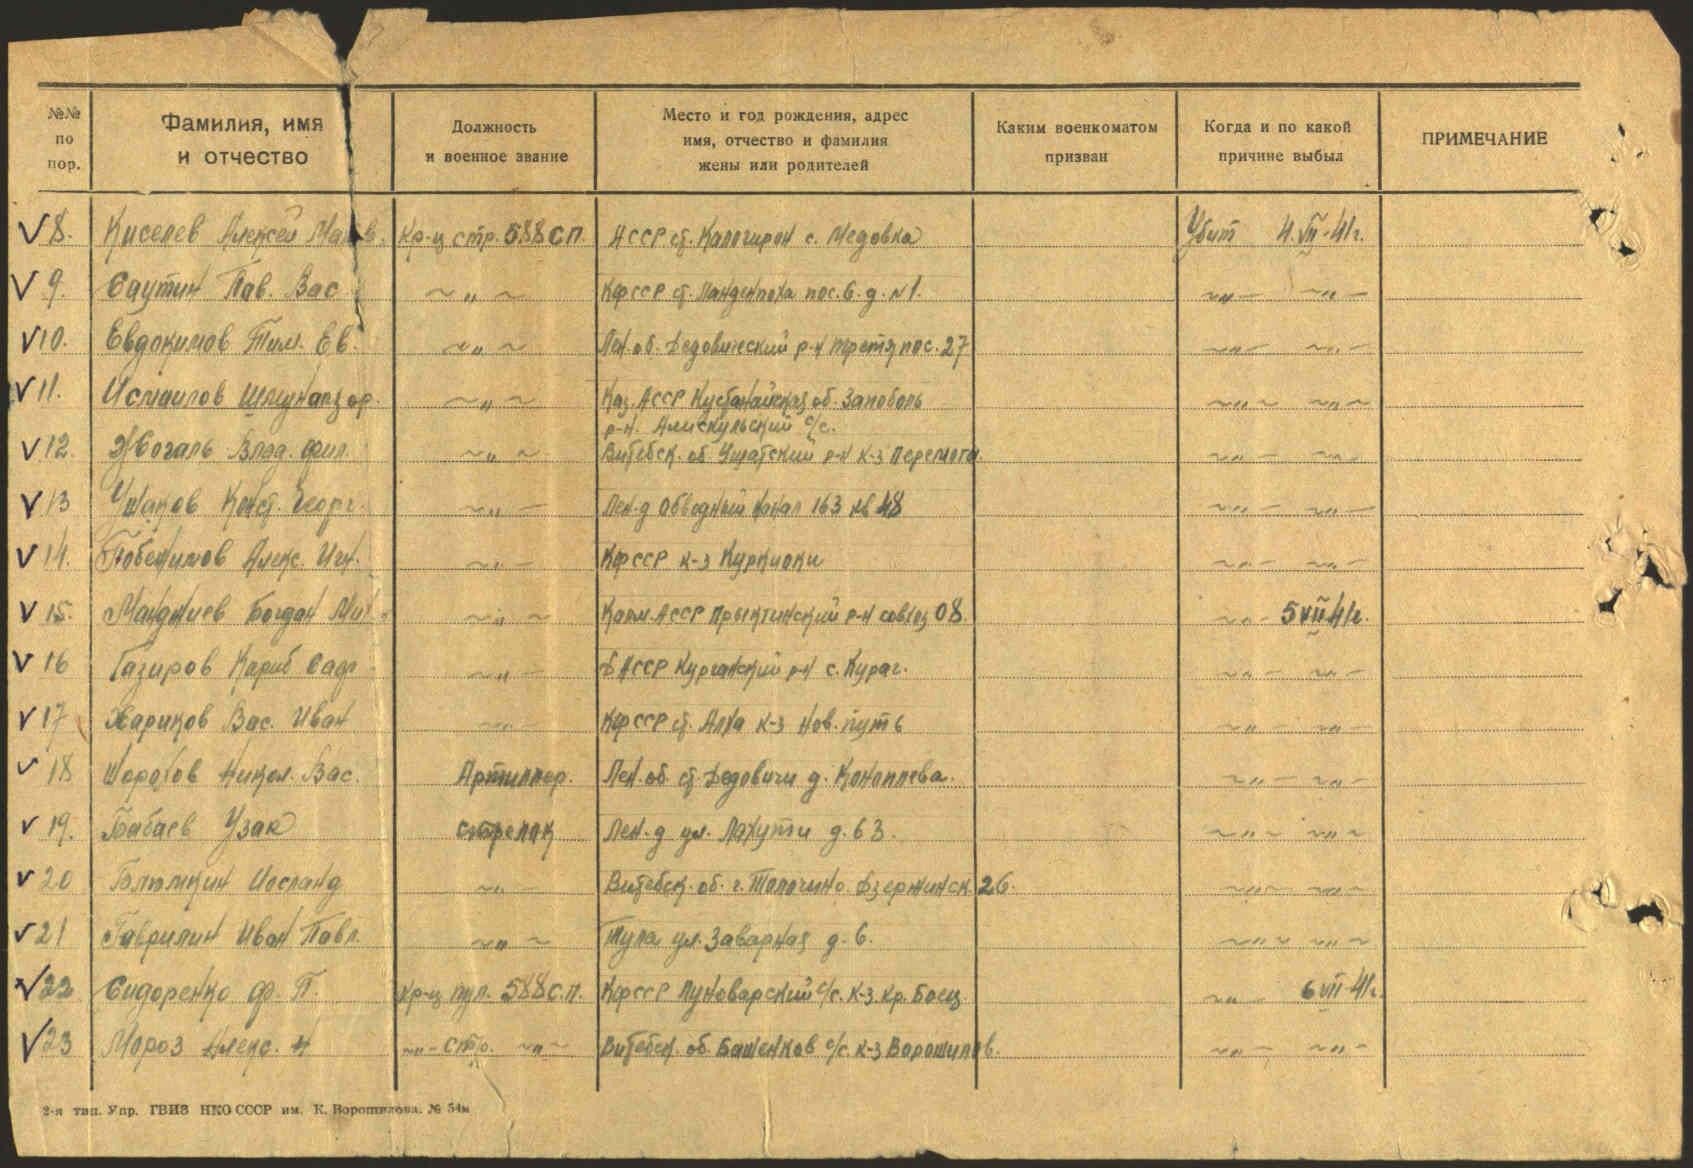 №№ по пор.
Фамилия, имя и отчество
Должность и военное звание
Место и год рождения, адрес имя, отчество и фамилия жены или родителей
Каким военкоматом призван
Когда и по какой причине выбыл
ПРИМЕЧАНИЕ
√ 8. Киселев Алексей кр-ц стр. 588 СП. АССР ст. с. Медовка Убит 4.VII-41г.
√ 9. Саутин Пав. Вас ~ „ ~ КФССР ст. пос. 6. д. №1. ~„~ ~„~
√ 10. Евдокимов Тим. Ев. ~ „ ~ Лен. об. Дедовический р-н пос. 27 ~„~ ~„~
√ 11. Исмаилов ~ „ ~ Каз. АССР Кустанайская об. Затоболь ~„~ ~„~
р-н. с/с.
√ 12. Жогаль Влад. Фил. ~ „ ~ Витебск. об. Ушатский р-н к-з Перемога. ~„~ ~„~
√ 13 Ушаков Конст. Георг. ~ „ ~ Лен-д Обводный канал 163 кв 48 ~„~ ~„~
√ 14. Алекс. Игн. ~ „ ~ КФССР к-з Куркиоки ~„~ ~„~
√ 15. Манджиев Богдан Мих. ~ „ ~ Калм. АССР р-н совхоз 08. ~„~ 5 VII 41г.
√ 16 Кариб ~ „ ~ АССР р-н с. ~„~ ~„~
√ 17 Хариков Вас. Иван ~ „ ~ КФССР ст. к-з Нов. путь ~„~ ~„~
√ 18 Никол. Вас. Артиллер. Лен. об. ст. Дедовичи д. Коноплева. ~„~ ~„~
√ 19. Бабаев Узак стрелок Лен-д ул. Лахути д. 63. ~„~ ~„~
√ 20 ~ „ ~ Витебск. об. г. Толочино. Дзержинск. 26. ~„~ ~„~
√ 21 Гаврилин Иван Павл. ~ „ ~ Тула ул. Заварная д. 6. ~„~ ~„~
√ 22 Сидоренко Ф. П. кр-ц пул. 588 с.п. КФССР с/с. к-з. Кр. Боец. ~„~ 6 VII-41г.
√ 23 Мороз Алекс. Н ~„~ стр. ~„~ Витебск. об. Башенков с/с. к-з Ворошилов. ~„~ ~„~
2-я тип. Упр. ГВИЗ НКО СССР им. К. Ворошилова. № 54м